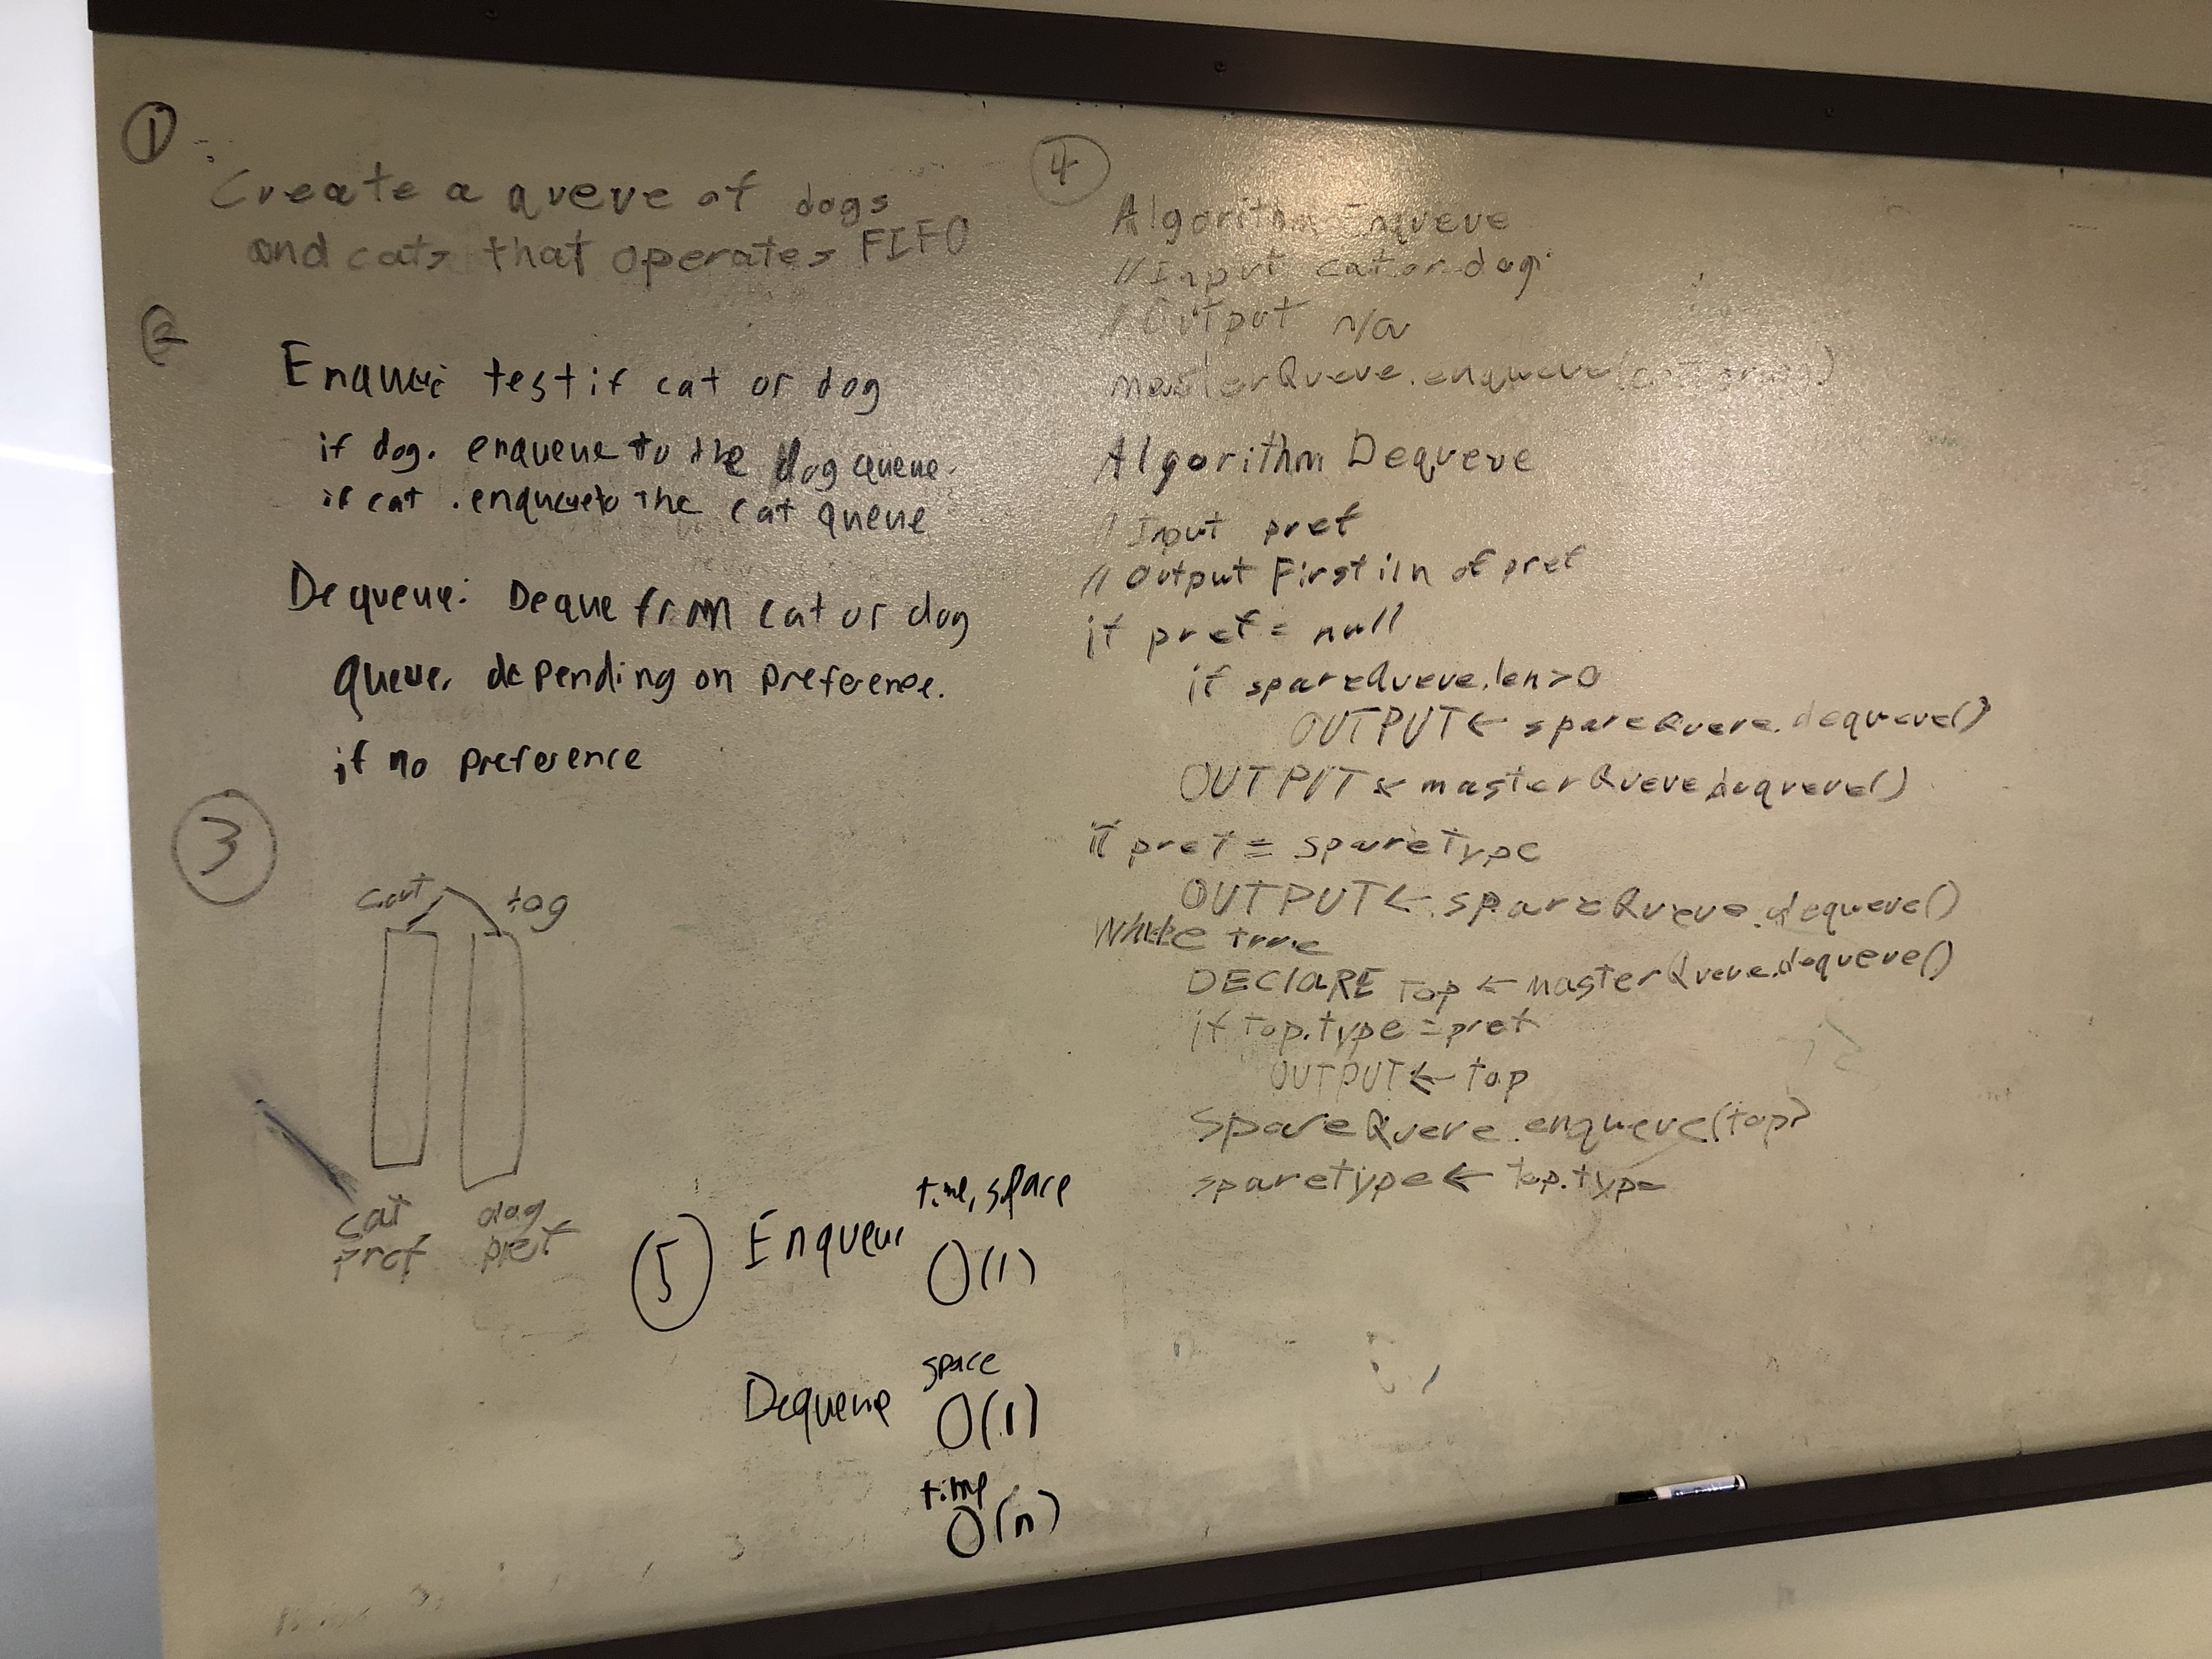 1
Create a queue of dogs
and cats that operates FIFO
2
Enqueue: test if cat or dog
if dog. enqueue to the dog queue.
if cat . enqueue to the cat queue
Dequeue: Deque from cat or dog
queue, depending on preference.
if no preference
3
cat
cat pref
dog pref
4
Algorithm Enqueue
// Input cat or dog
// Output n/a
masterQueue.enqueue(
Algorithm Dequeue
// Input pref
// Output First iln of pref
if pref = null
if spareQueue.len > 0
OUTPUT ← spareQueue.dequeue()
OUTPUT ← masterQueue.dequeue()
if pref = sparetype
OUTPUT ← spareQueue.dequeue()
While true
DECLARE top ← masterQueue.dequeue()
if top.type = pref
OUTPUT ← top
SpareQueue.enqueue(top)
sparetype ← top.type
5
time, space
Enqueue O(1)
space
Dequeue O(1)
time
O(n)